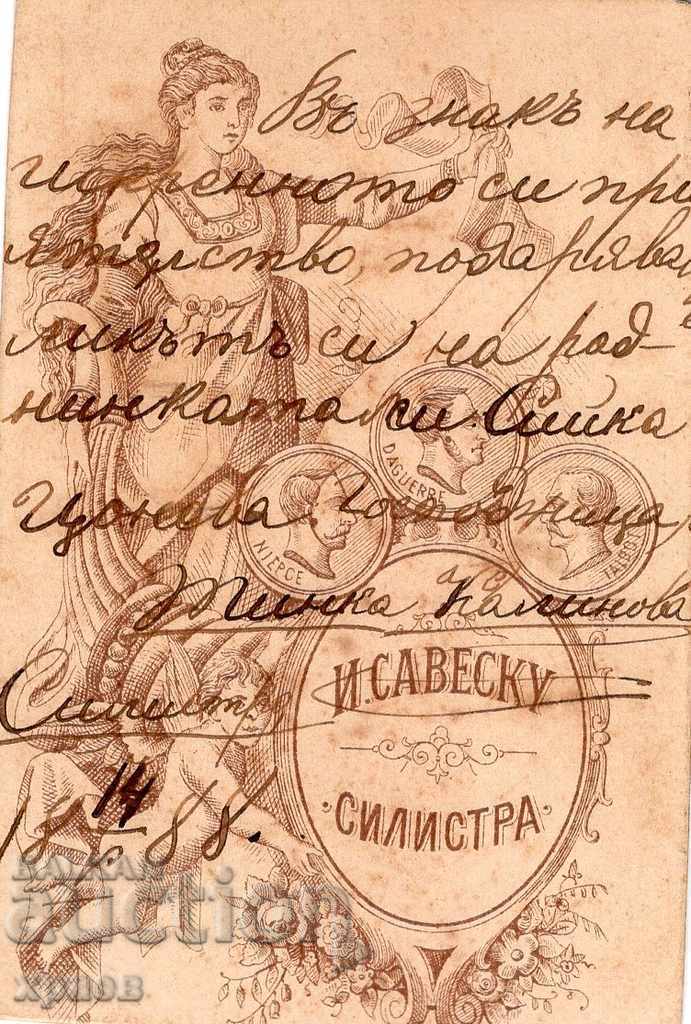 Въ знакъ на
искренното си при
ятелство, подарява
ликътъ си на род-
нинката си Сийка
Цонева Господница.
Тинка Калинова
Силистра
14
18 88.
DAGUERRE
NIEPCE
TALBOT
И. САВЕСКУ
СИЛИСТРА
БАЛКАН
auction
хрпов